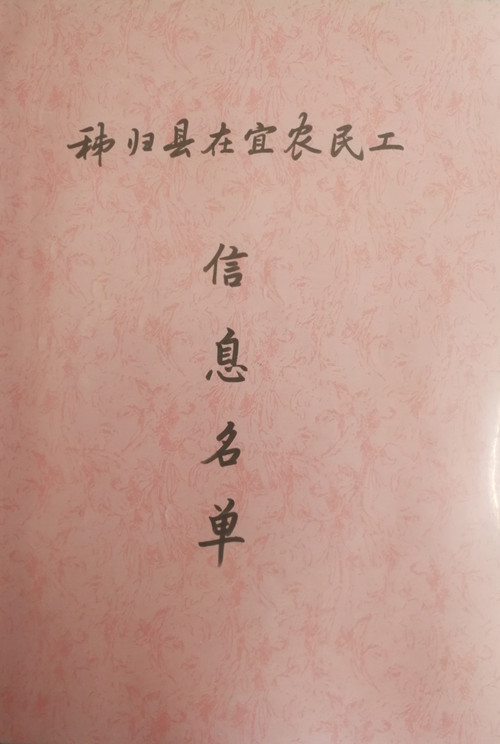 秭归县在宜农民工
信息名单